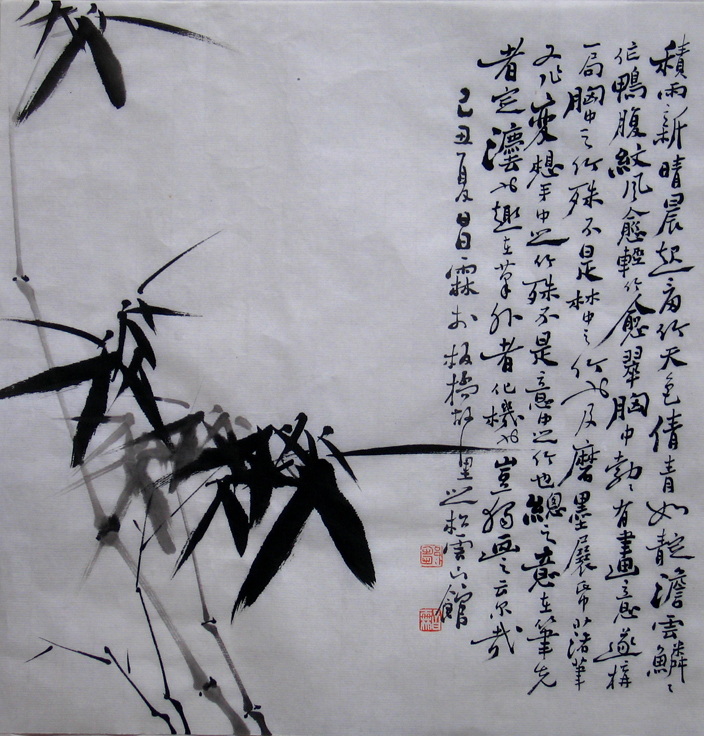 積雨新晴晨起竹天色倩青如靛澹雲鱗〻
作鴨腹紋風愈輕竹愈翠胸中勃〻有畫意遂構
一局胸中之竹殊不是林中之竹也及磨墨展帋筆
又作變想手中之竹殊不是意中之竹也總之意在筆先
者定灋也趣在筆外者化機也豈獨画之云尔哉
己丑夏昌霖於板橋故里之松雲山館